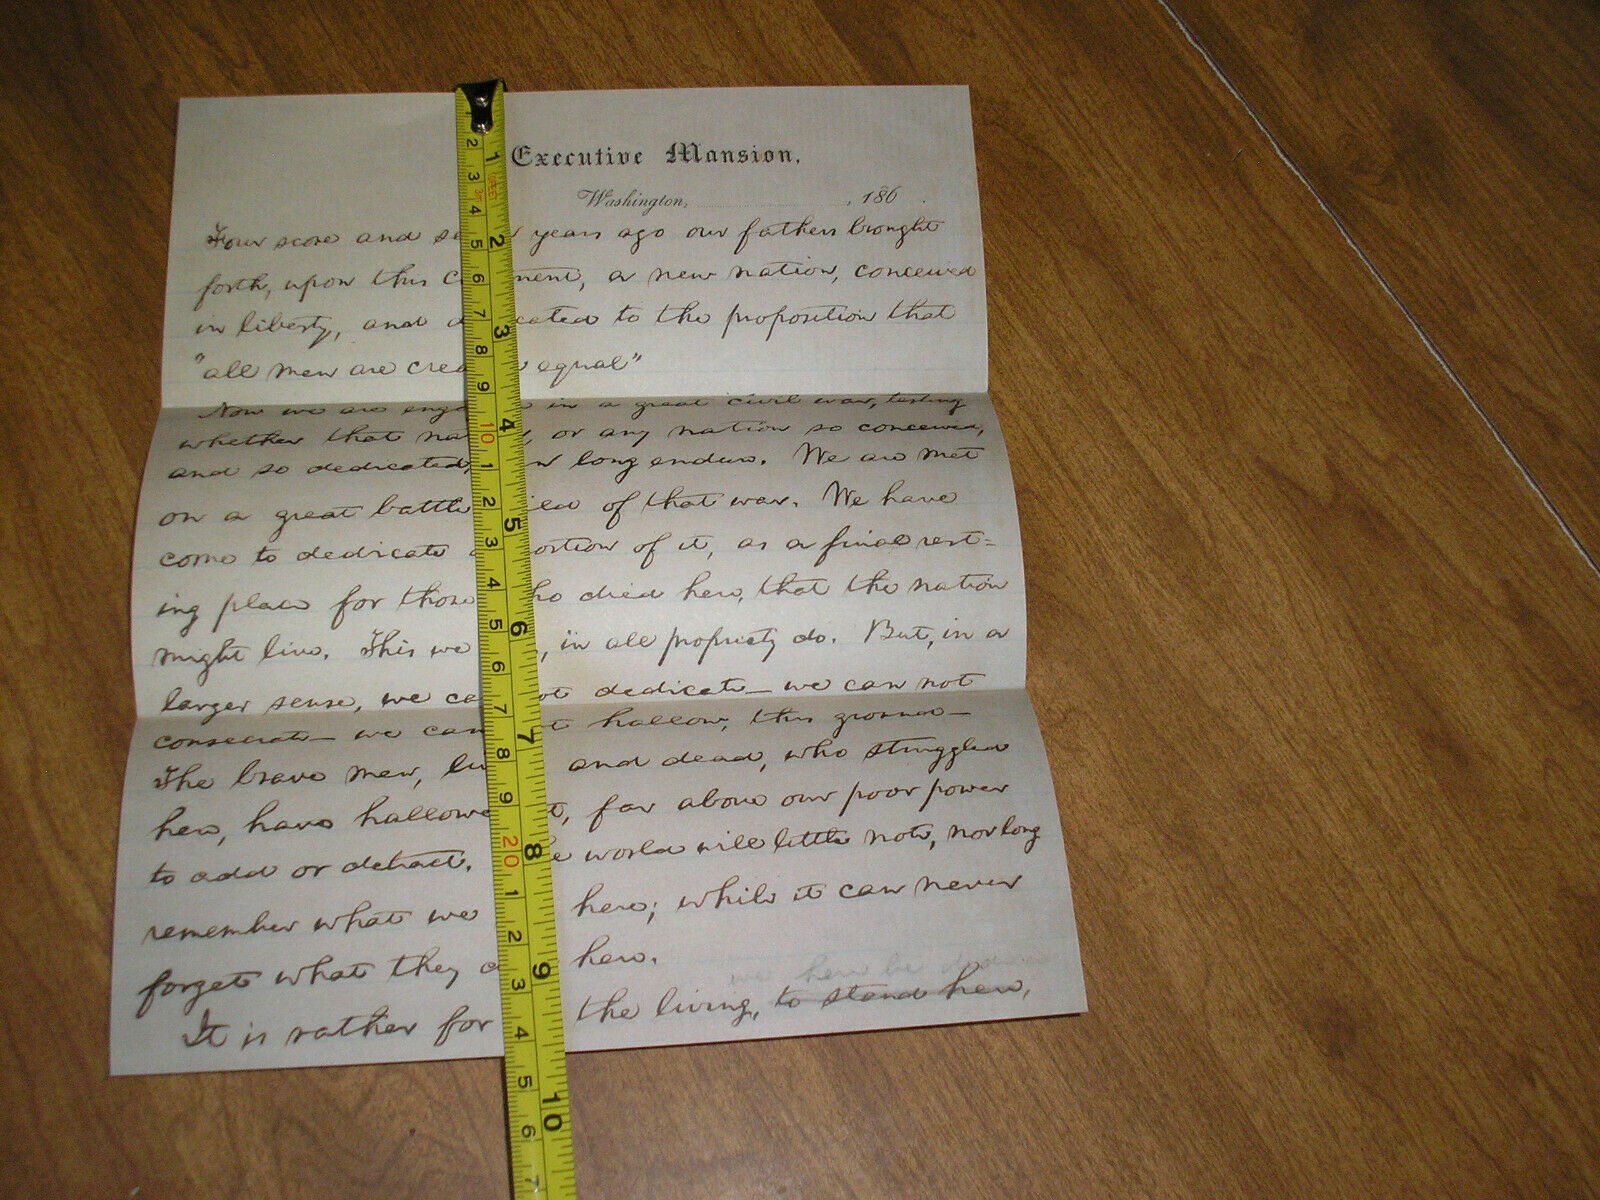 Executive Mansion,
Washington, , 186 .
Four score and years ago our fathers brought
forth, upon this a new nation, conceived
in liberty, and to the proposition that
"all men are equal"
Now we are in a great civil war, testing
whether that or any nation so conceived,
and so dedicated, long endure. We are met
on a great battle of that war. We have
come to dedicate of it, as a final rest=
ing place for those died here, that the nation
might live. This we , in all propriety do. But, in a
larger sense, we dedicate— we can not
consecrate— we hallow, this ground—
The brave men, and dead, who struggled
here, have far above our poor power
to add or detract. world will little note, nor long
remember what we here; while it can never
forget what they here.
we here be
It is rather for the living, to stand here,
1 2 3 4 5 6 7 8 9 10
2 3 4 5 6 7 8 9 10 1 2 3 4 5 6 7 8 9 20 1 2 3 4 5 6 7